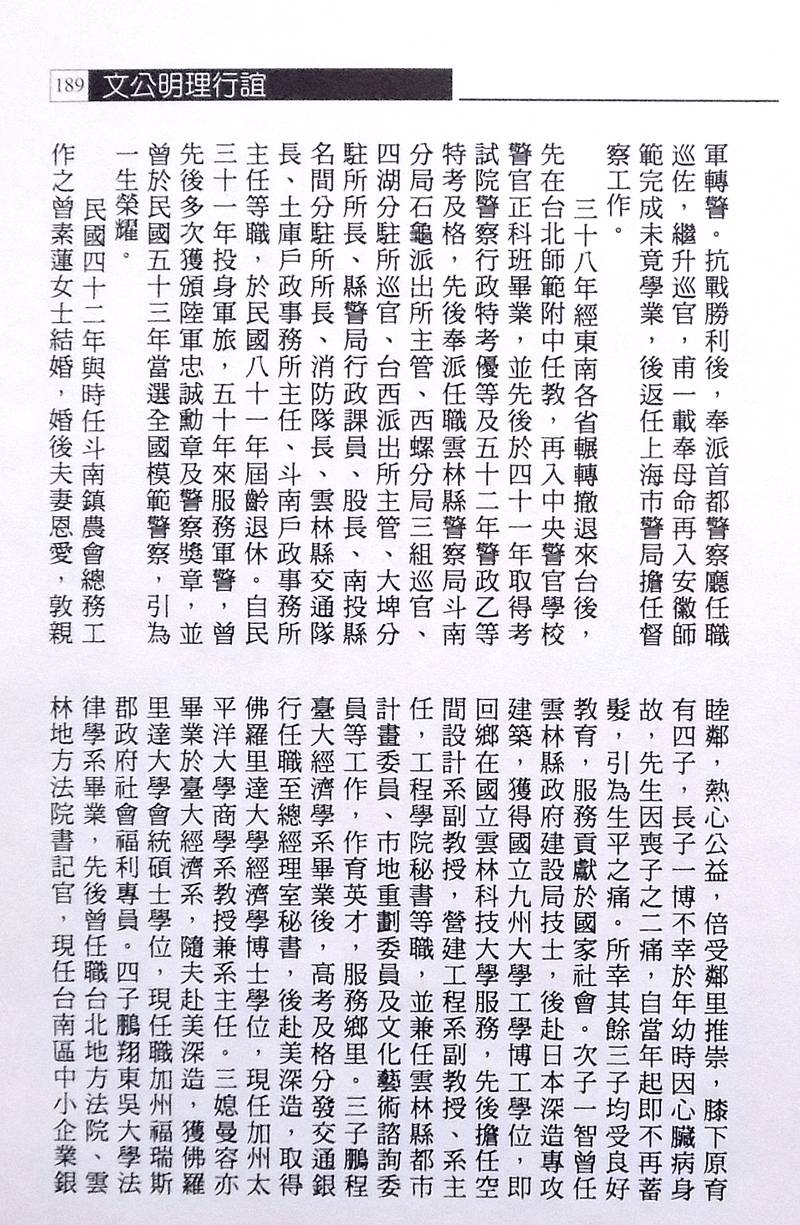 189 文公明理行誼
軍轉警。抗戰勝利後，奉派首都警察廳任職
巡佐，繼升巡官，甫一載奉母命再入安徽師
範完成未竟學業，後返任上海市警局擔任督
察工作。
三十八年經東南各省輾轉撤退來台後，
先在台北師範附中任教，再入中央警官學校
警官正科班畢業，並先後於四十一年取得考
試院警察行政特考優等及五十二年警政乙等
特考及格，先後奉派任職雲林縣警察局斗南
分局石龜派出所主管、西螺分局三組巡官、
四湖分駐所巡官、台西派出所主管、大埤分
駐所所長、縣警局行政課員、股長、南投縣
名間分駐所所長、消防隊長、雲林縣交通隊
長、土庫戶政事務所主任、斗南戶政事務所
主任等職，於民國八十一年屆齡退休。自民
三十一年投身軍旅，五十年來服務軍警，曾
先後多次獲頒陸軍忠誠勳章及警察獎章，並
曾於民國五十三年當選全國模範警察，引為
一生榮耀。
民國四十二年與時任斗南鎮農會總務工
作之曾素蓮女士結婚，婚後夫妻恩愛，敦親
睦鄰，熱心公益，倍受鄰里推崇，膝下原育
有四子，長子一博不幸於年幼時因心臟病身
故，先生因喪子之二痛，自當年起即不再蓄
髮，引為生平之痛。所幸其餘三子均受良好
教育，服務貢獻於國家社會。次子一智曾任
雲林縣政府建設局技士，後赴日本深造專攻
建築，獲得國立九州大學工學博工學位，即
回鄉在國立雲林科技大學服務，先後擔任空
間設計系副教授，營建工程系副教授、系主
任，工程學院秘書等職，並兼任雲林縣都市
計畫委員、市地重劃委員及文化藝術諮詢委
員等工作，作育英才，服務鄉里。三子鵬程
臺大經濟學系畢業後，高考及格分發交通銀
行任職至總經理室秘書，後赴美深造，取得
佛羅里達大學經濟學博士學位，現任加州太
平洋大學商學系教授兼系主任。三媳曼容亦
畢業於臺大經濟系，隨夫赴美深造，獲佛羅
里達大學會統碩士學位，現任職加州福瑞斯
郡政府社會福利專員。四子鵬翔東吳大學法
律學系畢業，先後曾任職台北地方法院、雲
林地方法院書記官，現任台南區中小企業銀